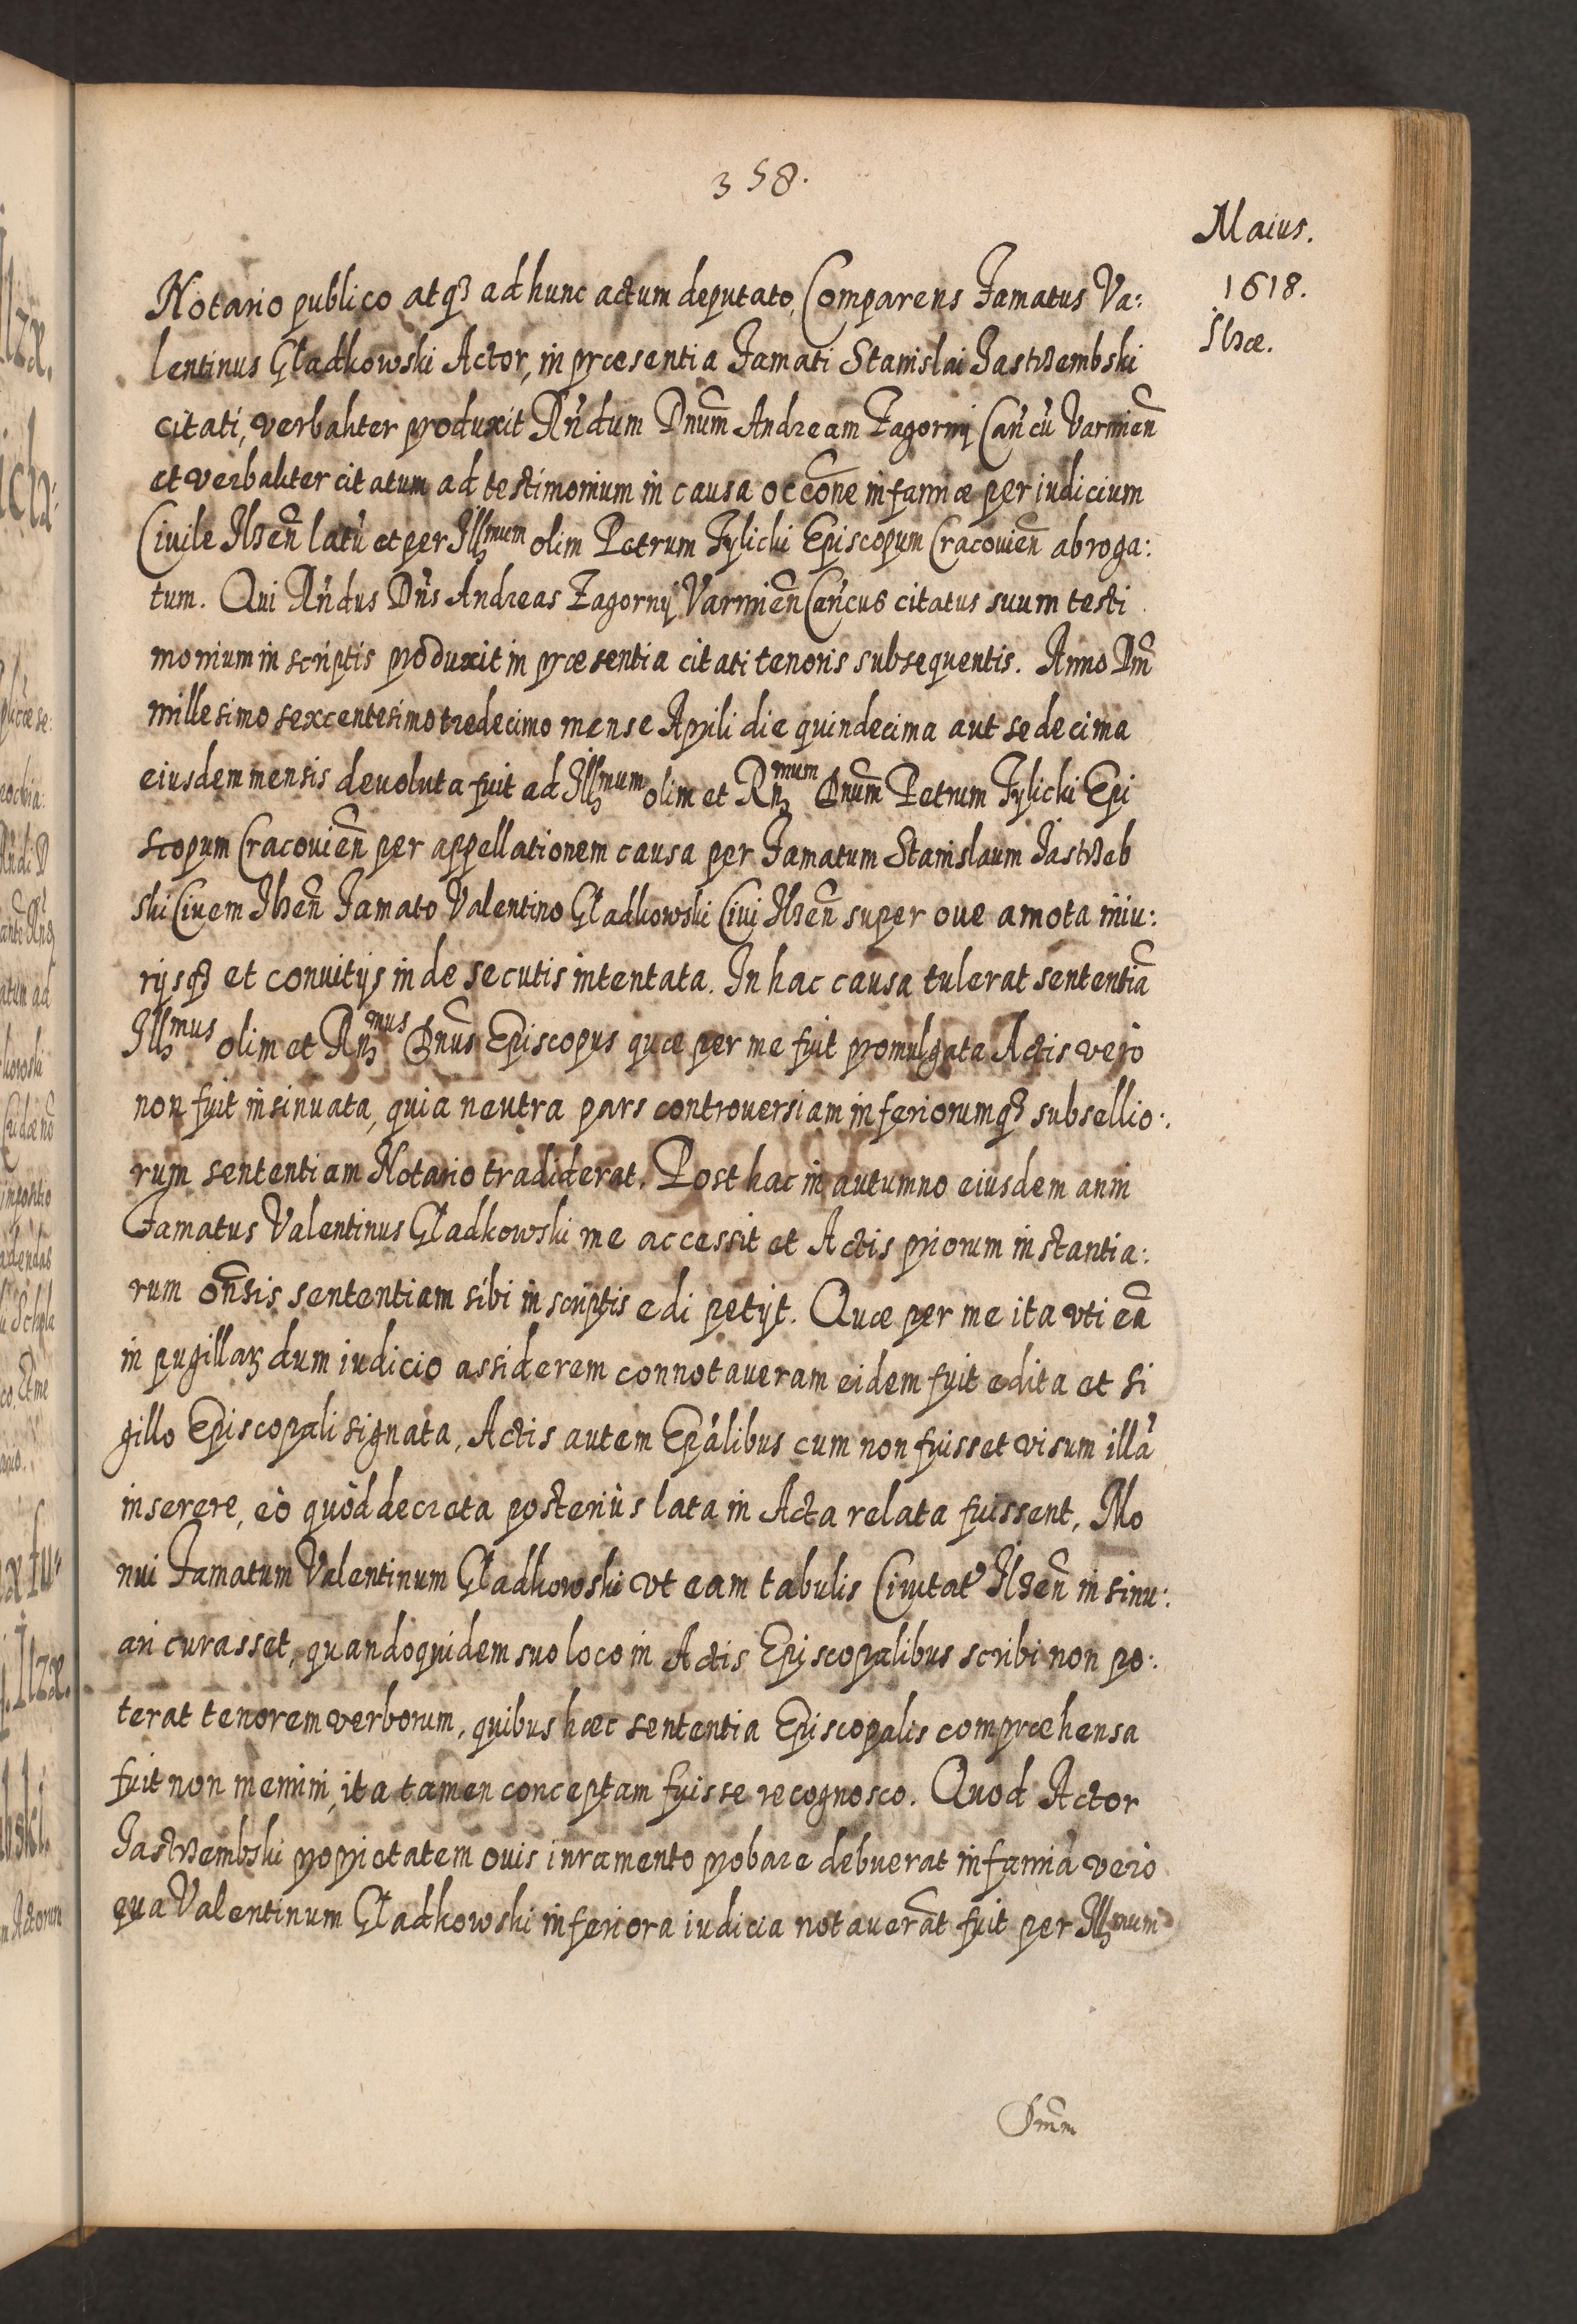 358.
Maius.
1618.
Ilzæ.
Notario publico atq3 ad hunc actum deputato, Comparens Famatus Va:
lentinus Gladkowski Actor, in præsentia Famati Stanislai Jastrzembski
citati, verbaliter produxit Rñdum Dnum̃ Andream Zagorny Cañcũ Varmien̄
et verbaliter citatum ad testimonium in causa occōne infamiæ per iudicium
Civile Ilzen̄ latũ et per Illmum olim Petrum Tylicki Episcopum Cracovien̄ abroga:
tum. Qui Rñdus Dñs Andreas Zagorny Varmien̄ Cañcus citatus suum testi
monium in scriptis produxit in præsentia citati tenoris subsequentis. Anno Dm̄
millesimo sexcentesimo tredecimo mense Aprili die quindecima aut sedecima
eiusdem mensis devoluta fuit ad Illmum olim et Rnmum Dnum̃ Petrum Tylicki Epi
scopum Cracovien̄ per appellationem causa per Famatum Stanislaum Jastrzeb
ski Civem Ilzen̄ Famato Valentino Gladkowski Civi Ilzen̄ super ove amota iniu:
rijsq3 et convitijs inde secutis intentata. In hac causa tulerat sententiā
Illmus olim et Rnmus Dnus̃ Episcopus quæ per me fuit promulgata Actis verò
non fuit insinuata, quia neutra pars controversiam inferiorumq3 subsellio:
rum sententiam Notario tradiderat. Post hac in autumno eiusdem anni
Famatus Valentinus Gladkowski me accessit et Actis priorum instantia:
rum on̄sis sententiam sibi in scriptis edi petijt. Quæ per me ita vti eā
in pugillar3 dum iudicio assiderem connotaveram eidem fuit edita et si
gillo Episcopali signata, Actis autem Epālibus cum non fuisset visum illā
inserere, eò quòd decreta posteriùs lata in Acta relata fuissent, Mo
nui Famatum Valentinum Gladkowski vt eam tabulis Civitat Ilzen̄ insinu:
ari curasset, quandoquidem suo loco in Actis Episcopalibus scribi non po:
terat tenorem verborum, quibus hæc sententia Episcopalis compræhensa
fuit non memini, ita tamen conceptam fuisse recognosco. Quod Actor
Jastrzembski proprietatem ovis iuramento probare debuerat infamiā verò
qua Valentinum Gladkowski inferiora iudicia notaverāt fuit per Illmum
Dnum̃